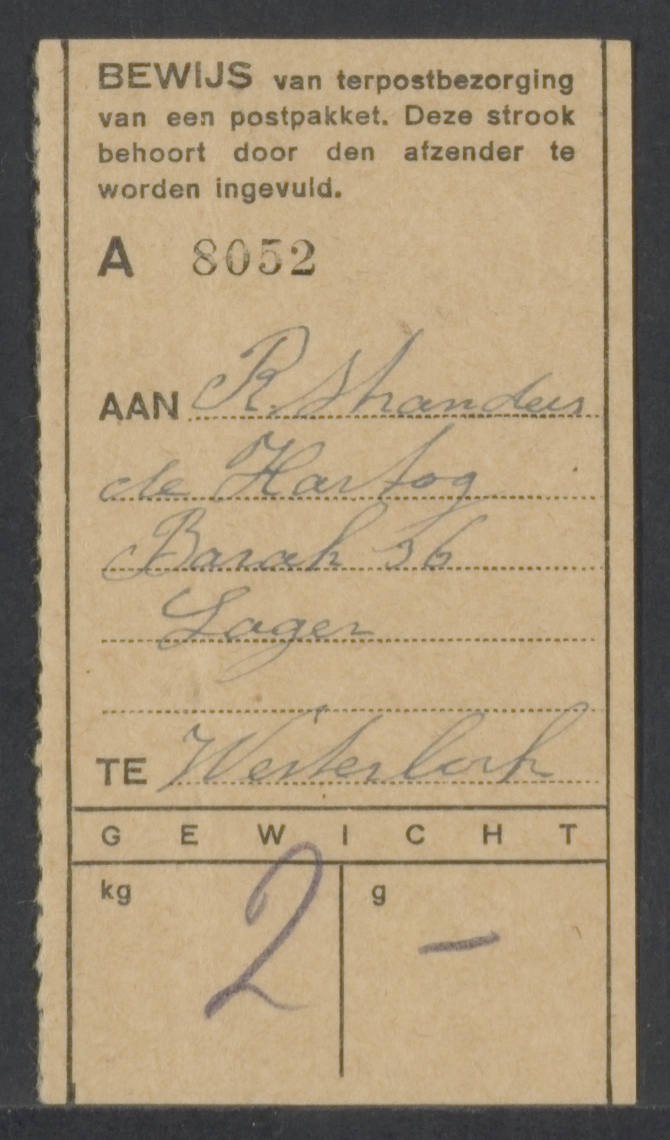 BEWIJS van terpostbezorging
van een postpakket. Deze strook
behoort door den afzender te
worden ingevuld.
A 8052
AAN R. Shanders
de Hartog
Barak 56
Lager
TE Westerbork
GEWICHT
kg 2 g —